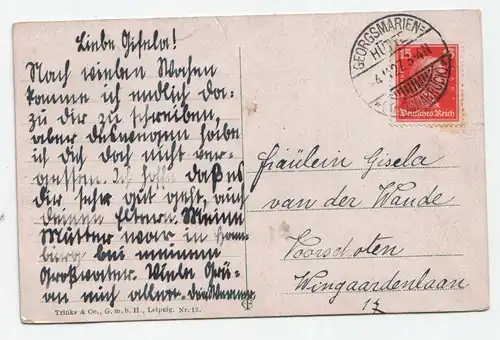 Liebe Gisela!
Nach vielen Wochen
komme ich endlich da-
zu dir zu schreiben,
aber deswegen habe
ich dich doch nicht ver-
gessen. Ich hoffe daß es
dir sehr gut geht, auch
deinen Eltern. Meine
Mutter war in Ham-
burg bei meinem
Großvater. Viele Grü-
an euch alle
Trinks & Co., G. m. b. H., Leipzig. Nr. 12.
GEORGSMARIEN-
HÜTTE
Deutsches Reich
Fräulein Gisela
van der Wande
Voorschoten
Wingaardenlaan
17